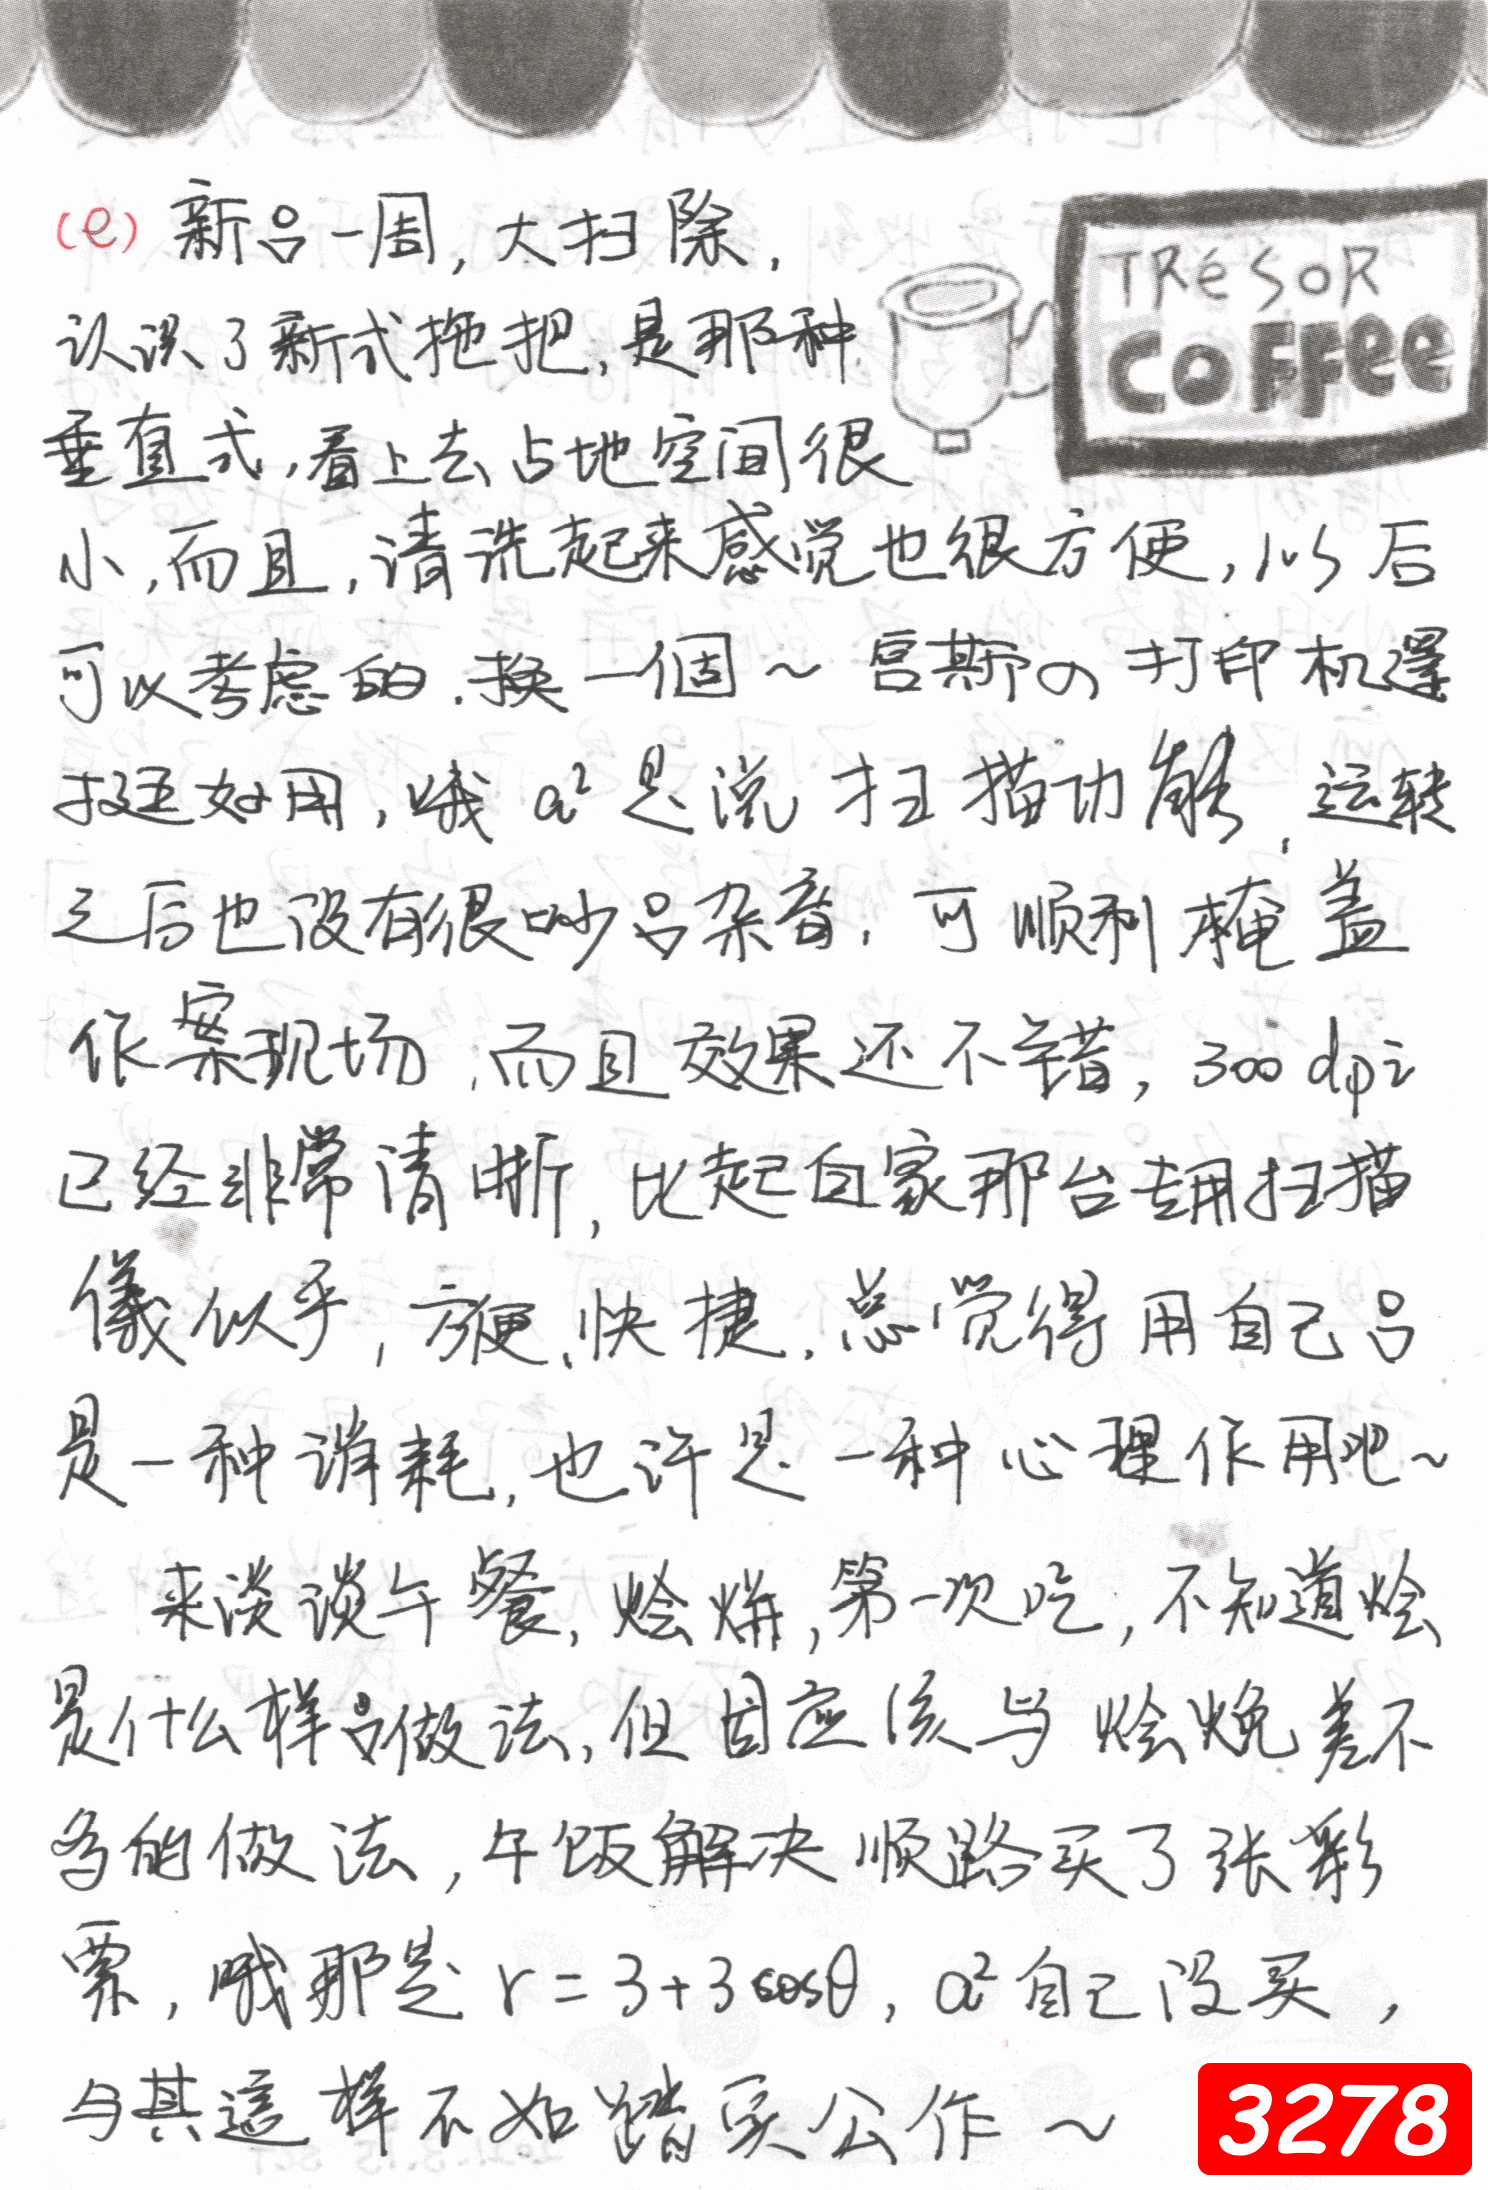 (e) 新吕一周,大扫除,
TRéSOR
COFFee
认识了新式拖把,是那种
垂直式,看上去占地空间很
小,而且,请洗起来感觉也很方便,以后
可以考虑的.换一個~宫斯の打印机还
挺好用,哦a²是说扫描功能,运转
之后也没有很吵吕杂音,可顺利掩盖
作案现场,而且效果还不错,300dpi
已经非常清晰,比起自家那台专用扫描
儀似乎,方便、快捷.总觉得用自己吕
是一种消耗,也许是一种心理作用吧~
来谈谈午餐,烩饼,第一次吃,不知道烩
是什么样吕做法,但因应该与烩面差不
多的做法,午饭解决顺路买了张彩
票,哦那是r=3+3cosθ,a²自己没买,
与其這样不如踏实公作~
3278